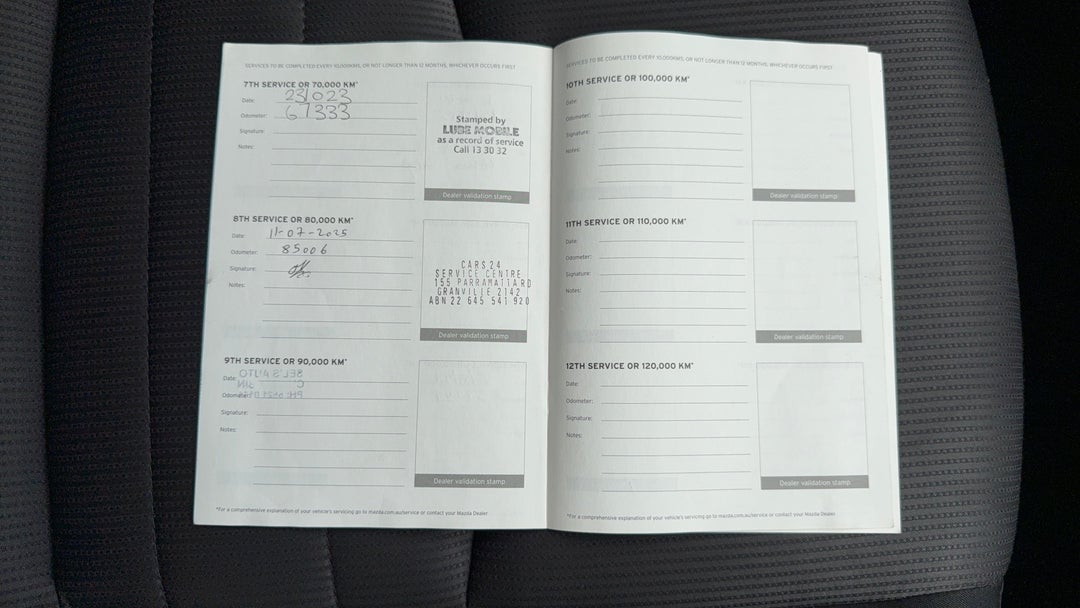 SERVICES TO BE COMPLETED EVERY 10,000KMS, OR NOT LONGER THAN 12 MONTHS, WHICHEVER OCCURS FIRST
7TH SERVICE OR 70,000 KM*
Date: 231023
Odometer: 67333
Signature:
Notes:
Stamped by
LUBE MOBILE
as a record of service
Call 13 30 32
Dealer validation stamp
8TH SERVICE OR 80,000 KM*
Date: 11-07-2025
Odometer: 85006
Signature:
Notes:
CARS 24
SERVICE CENTRE
155 PARRAMATTA RD
GRANVILLE 2142
ABN 22 645 541 920
Dealer validation stamp
9TH SERVICE OR 90,000 KM*
Date:
Odometer:
Signature:
Notes:
Dealer validation stamp
*For a comprehensive explanation of your vehicle's servicing go to mazda.com.au/service or contact your Mazda Dealer
SERVICES TO BE COMPLETED EVERY 10,000KMS, OR NOT LONGER THAN 12 MONTHS, WHICHEVER OCCURS FIRST
10TH SERVICE OR 100,000 KM*
Date:
Odometer:
Signature:
Notes:
Dealer validation stamp
11TH SERVICE OR 110,000 KM*
Date:
Odometer:
Signature:
Notes:
Dealer validation stamp
12TH SERVICE OR 120,000 KM*
Date:
Odometer:
Signature:
Notes:
Dealer validation stamp
*For a comprehensive explanation of your vehicle's servicing go to mazda.com.au/service or contact your Mazda Dealer